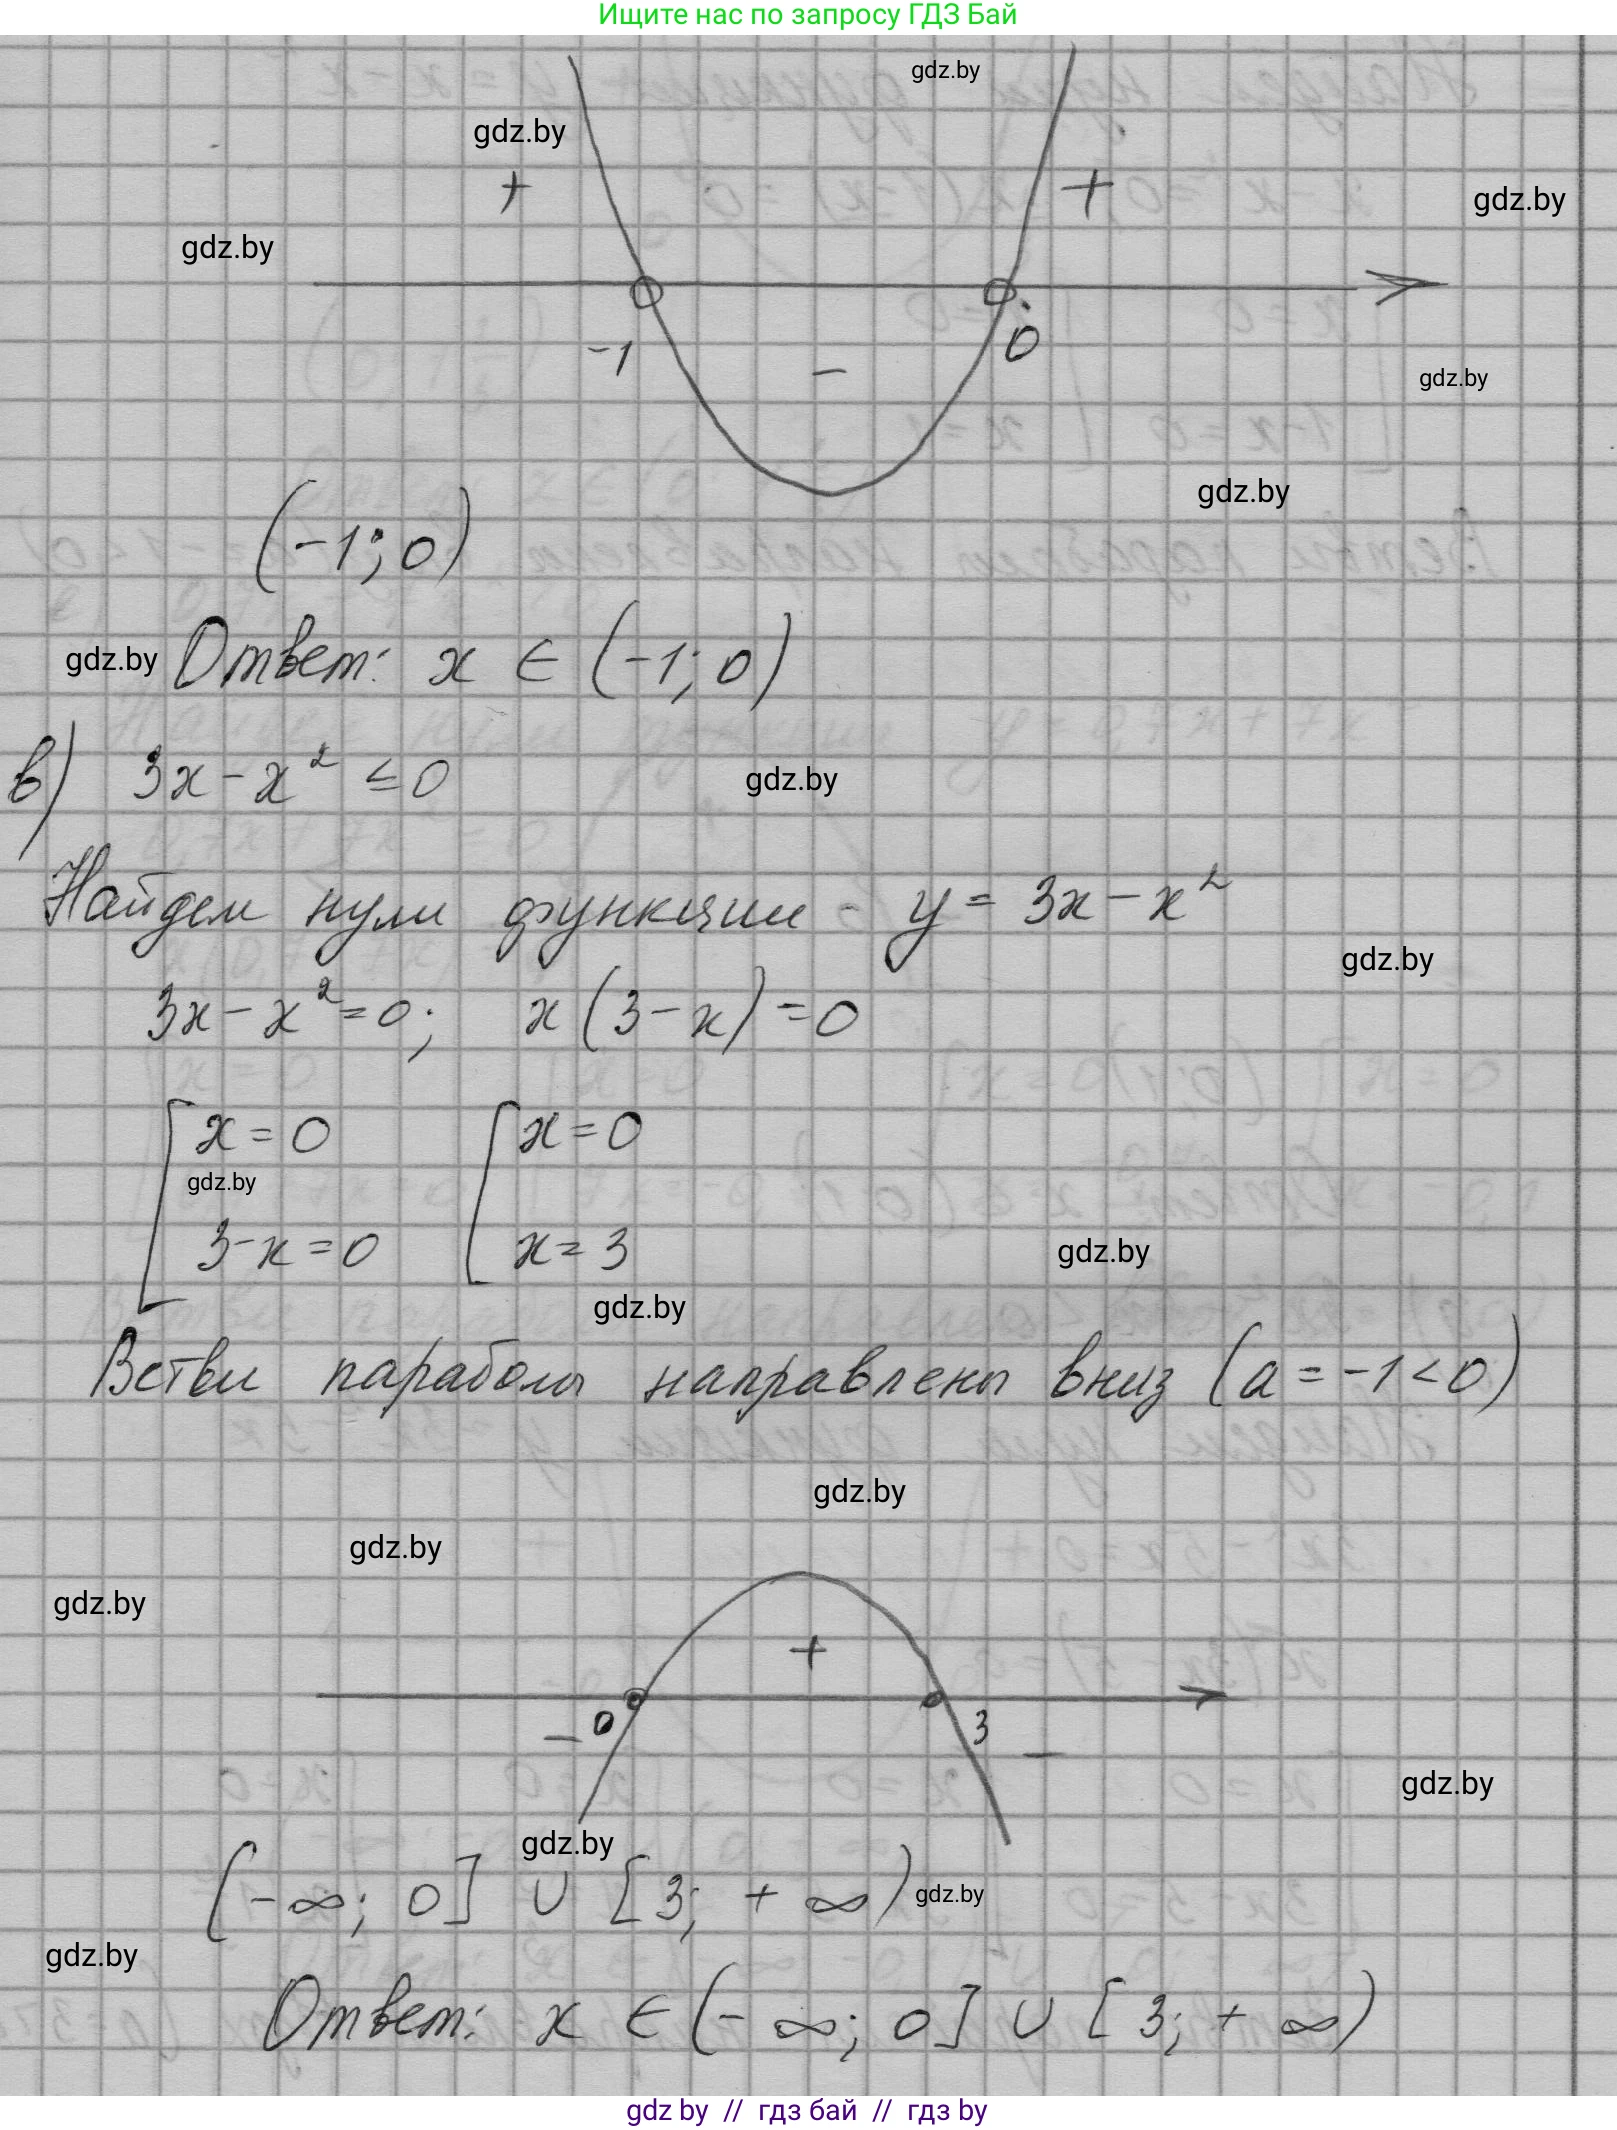 Ищите нас по запросу ГДЗ Бай
gdz.by
gdz.by
+ +
gdz.by
gdz.by
-1 0
-
gdz.by
gdz.by
(-1; 0)
gdz.by
Ответ: x ∈ (-1; 0)
в) 3x - x² ≤ 0
gdz.by
Найдем нули функции - y = 3x - x²
gdz.by
3x - x² = 0; x(3 - x) = 0
[x = 0 [x = 0
gdz.by
3 - x = 0 x = 3
gdz.by
gdz.by
Ветви параболы направлены вниз (a = -1 < 0)
gdz.by
gdz.by
gdz.by
+
- 0 3 -
gdz.by
gdz.by
(-∞; 0] ∪ [3; +∞)
gdz.by
gdz.by
Ответ: x ∈ (-∞; 0] ∪ [3; +∞)
gdz by // гдз бай // гдз by